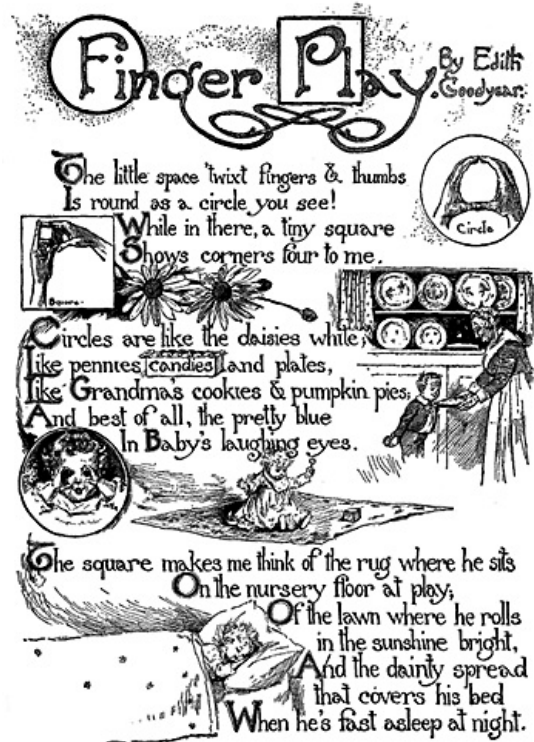 Finger Play.
By Edith
Goodyear.
The little space 'twixt fingers & thumbs
Is round as a circle you see!
While in there, a tiny square
Shows corners four to me.
Circle
Square.
Circles are like the daisies white,
Like pennies candies and plates,
Like Grandma's cookies & pumpkin pies;
And best of all, the pretty blue
In Baby's laughing eyes.
The square makes me think of the rug where he sits
On the nursery floor at play;
Of the lawn where he rolls
in the sunshine bright,
And the dainty spread
that covers his bed
When he's fast asleep at night.